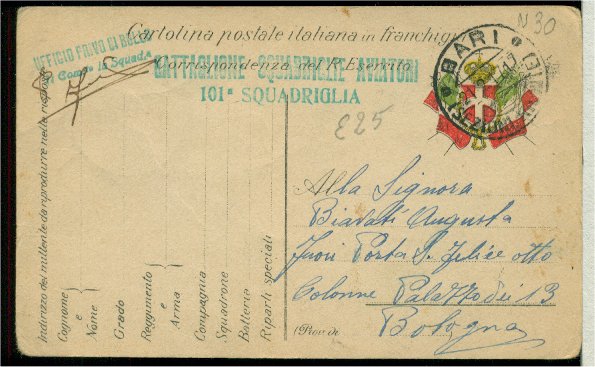 N 30
Cartolina postale italiana in franchigia
Corrispondenza del R. Esercito
UFFICIO PRIVO DI BOLLO
BATTAGLIONE SQUADRIGLIE AVIATORI
101ª SQUADRIGLIA
BARI
E25
Indirizzo del mittente da riprodurre nelle risposte
Cognome
e
Nome
Grado
Reggimento
e
Arma
Compagnia
Squadrone
Batteria
Riparti speciali
Alla Signora
Biavati Augusta
Fuori Porta S. Felice otto
Colonne Palazzo dei 13
(Prov. di
Bologna